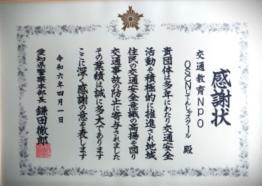 感謝状
交通教育NPO
OSCNてんしすクール 殿
貴団体は多年にわたり交通安全
活動を積極的に推進され地域
住民の交通安全意識の高揚を図り
交通事故の防止に寄与されました
その業績は誠に多大であります
ここに深く感謝の意を表します
令和六年四月一日
愛知県警察本部長 鎌田徹郎